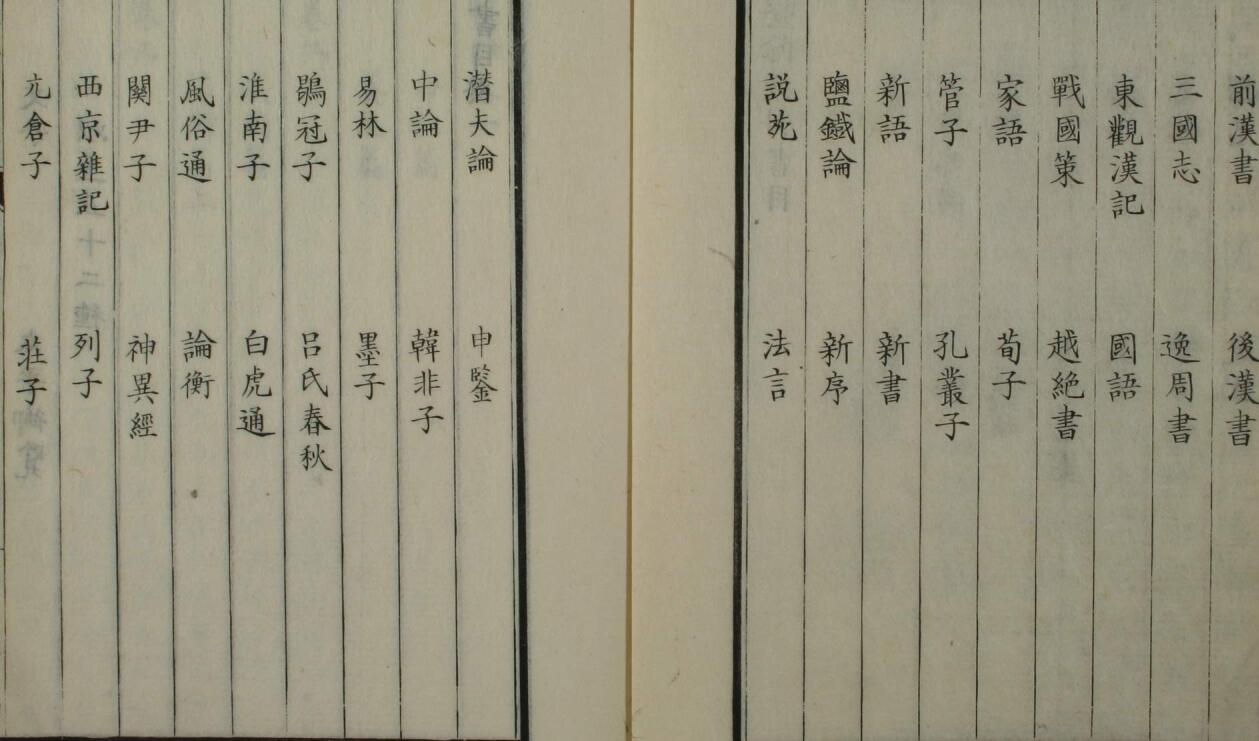 前漢書 後漢書
三國志 逸周書
東觀漢記 國語
戰國策 越絕書
家語 荀子
管子 孔叢子
新語 新書
鹽鐵論 新序
説苑 法言
潜夫論 申鑒
中論 韓非子
易林 墨子
鶡冠子 吕氏春秋
淮南子 白虎通
風俗通 論衡
關尹子 神異經
西京雜記 列子
亢倉子 莊子